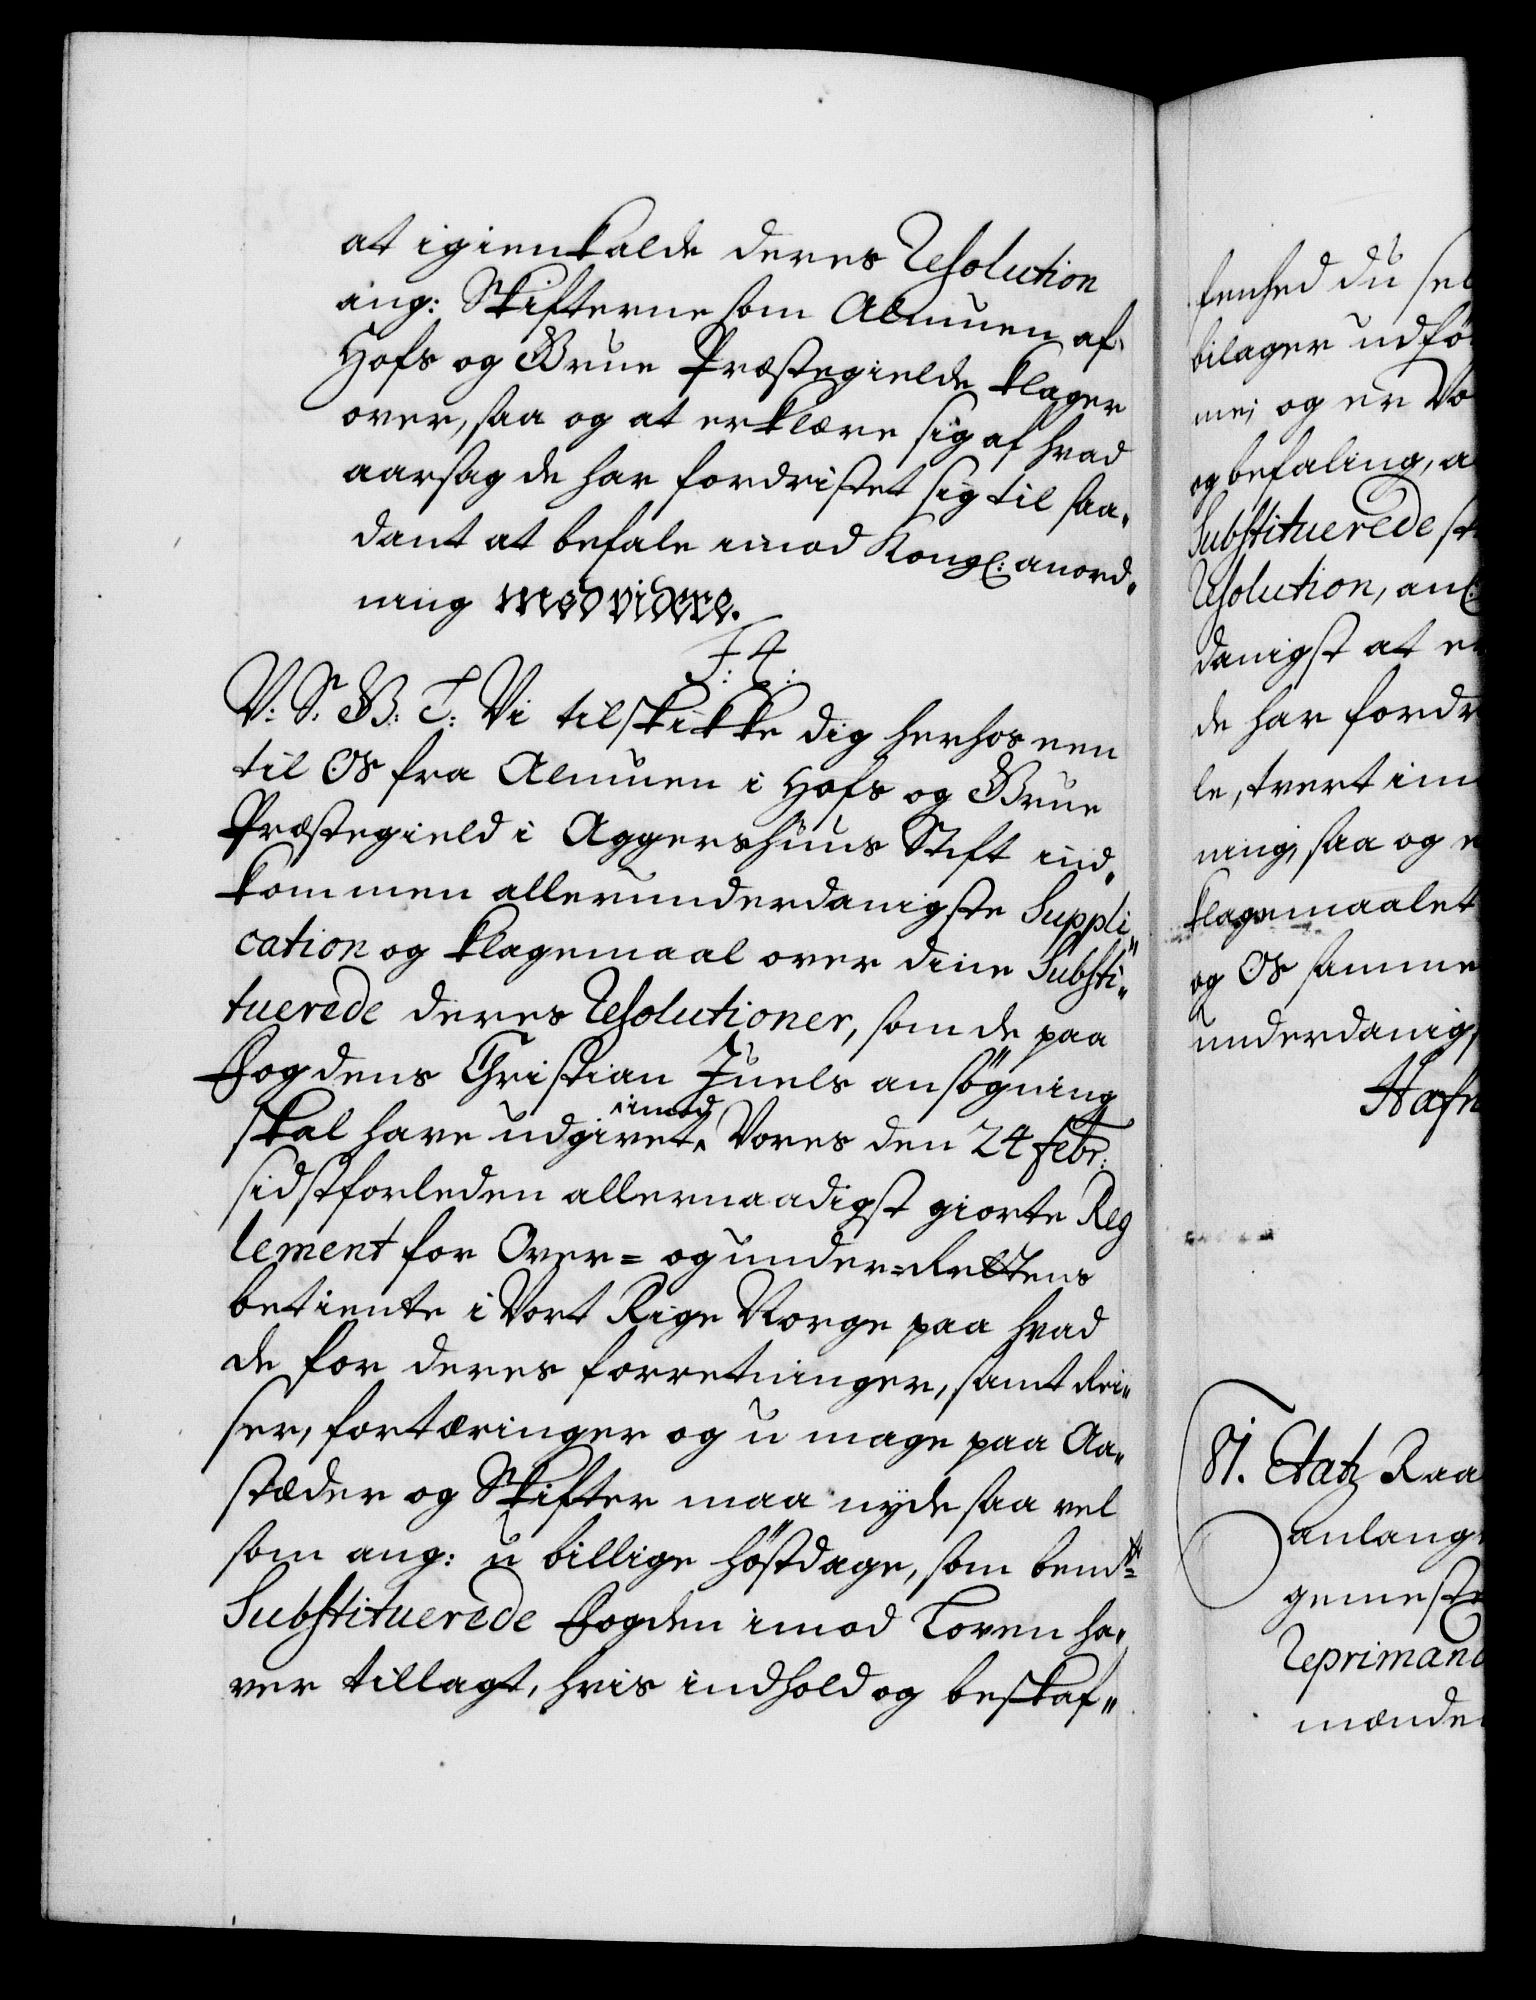 at igienkalde deres Resolution
ang: Skifterne som Almuen af
Hofs og Grue Præstegielde klager
over, saa og at erklære sig af hvad
aarsag de har fordristet sig til saa„
dant at befale imod Kongl: anord„
ning med videre.
F. 4.
V: S: G: T: Vi tilskikke dig herhos een
til Os fra Almuen i Hofs og Grue
Præstegield i Aggershuus Stift ind„
kommen allerunderdanigste Suppli„
cation og klagemaal over dine Substi„
tuerede deres Resolutioner, som de paa
Fogdens Christian Juels ansögning
skal have udgivet imod Vores den 24 Febr:
sidstforleden allernaadigst giorte Reg
lement for Over= og under=Rettens
betiente i Vort Rige Norge paa hvad
de for deres forretninger, samt Rei„
ser, fortæringer og u mage paa Aa„
stæder og Skifter maa nyde saa vel
som ang: u billige höstdage, som bemte
Substituerede Fogden imod Loven ha„
ver tillagt, hvis indhold og beskaf„
fenhed du sel
bilager udfö
me; og er Vo
og befaling, a
Substituerede st
Resolution, anl:
danigst at er
de har fordr
le, tvert im
ning, saa og
klagemaalet
og Os samme
underdanig
Hafn
81. Etatz Raa
anlang
gemest
Reprimand
mænde